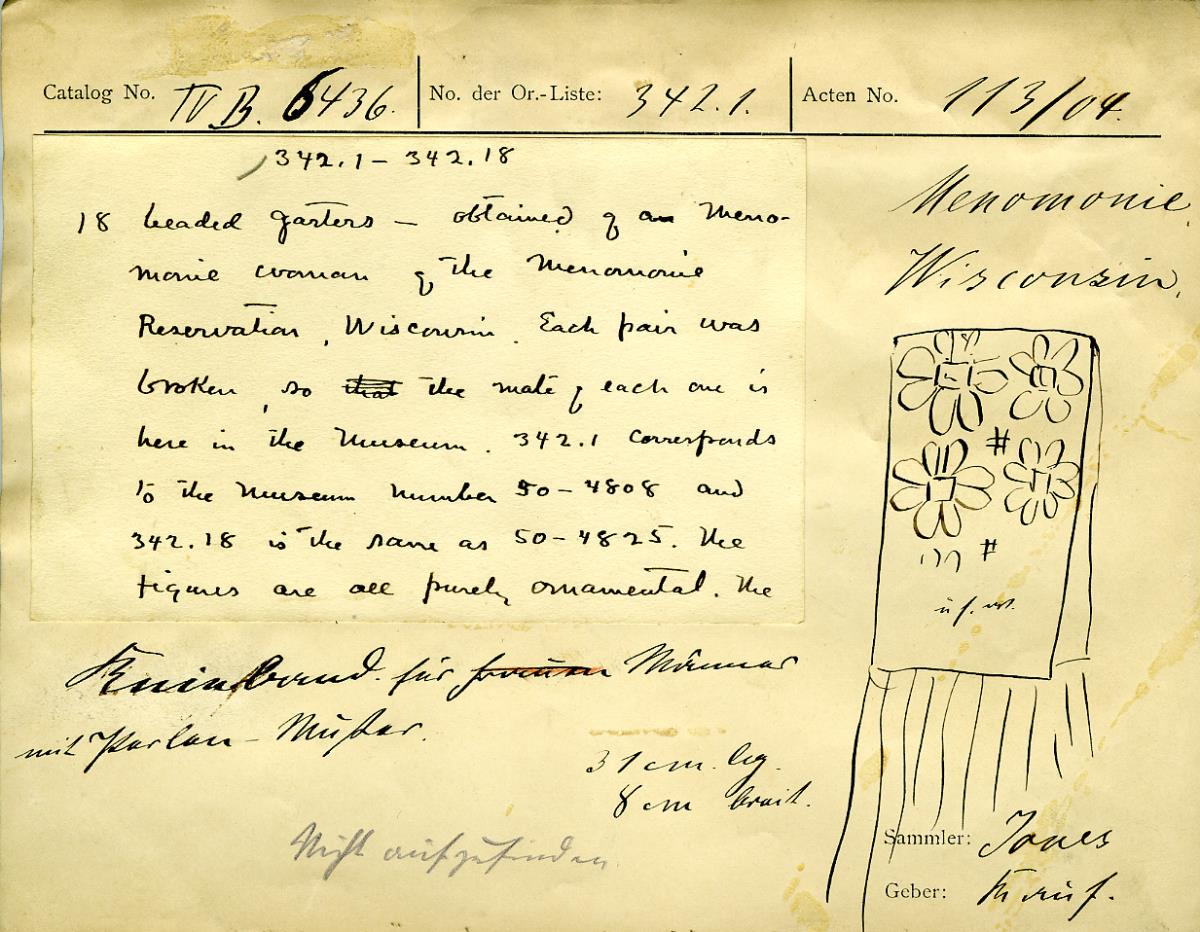 Catalog No. IV B. 6436. No. der Or.-Liste: 342.1. Acten No. 113/04.
342.1 – 342.18
18 beaded garters – obtained of a Meno-
monie woman of the Menomonie
Reservation, Wisconsin. Each pair was
broken, so that the mate of each one is
here in the Museum. 342.1 corresponds
to the Museum number 50-4808 and
342.18 is the same as 50-4825. The
figures are all purely ornamental. The
Menomonie,
Wisconsin.
#
#
u. s. w.
Knieband für Frauen Männer
mit Perlen-Muster.
31 cm. lg.
8 cm breit.
Nicht aufzufinden
Sammler: Jones
Geber: Kauf.